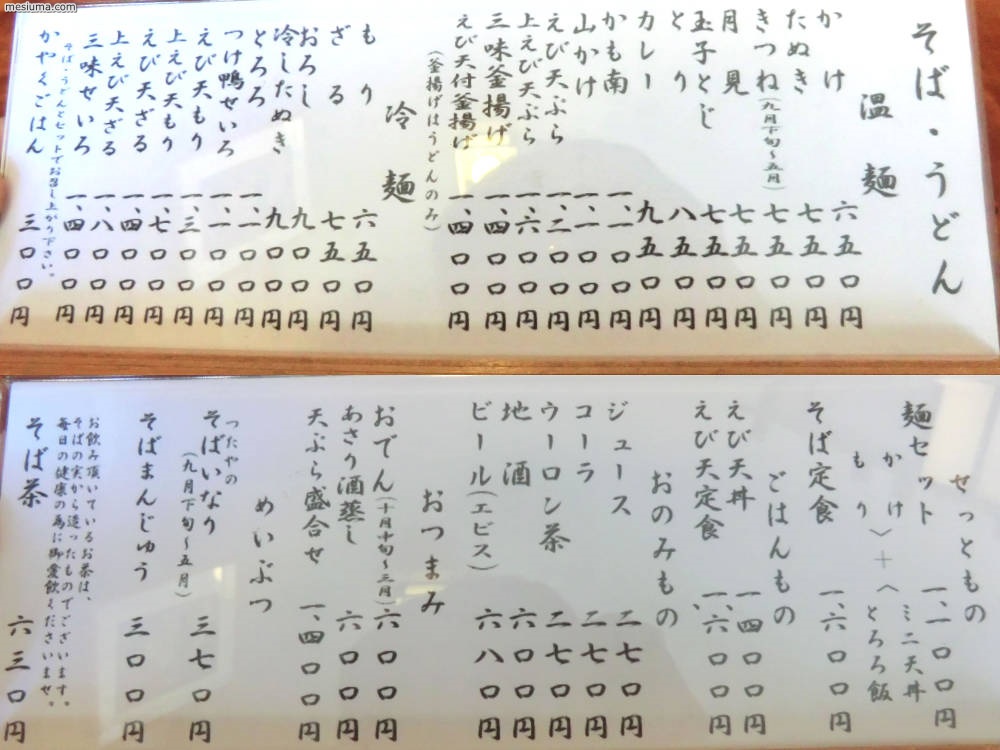 mesiuma.com
そば・うどん
温麺
かけ 六五〇円
たぬき 七五〇円
きつね(九月下旬〜五月) 七五〇円
月見 七五〇円
玉子とじ 七五〇円
とり 八五〇円
カレー 九五〇円
かも南 一、一〇〇円
山かけ 一、一〇〇円
えび天ぷら 一、二〇〇円
上えび天ぷら 一、六〇〇円
三味釜揚げ 一、四〇〇円
えび天付釜揚げ 一、四〇〇円
(釜揚げはうどんのみ)
冷麺
もり 六五〇円
ざる 七五〇円
おろし 九〇〇円
冷したぬき 九〇〇円
とろろ 一、一〇〇円
つけ鴨ぜいろ 一、一〇〇円
えび天もり 一、三〇〇円
上えび天もり 一、七〇〇円
えび天ざる 一、四〇〇円
上えび天ざる 一、八〇〇円
三味ぜいろ 一、四〇〇円
そば・うどんとセットでお召し上がり下さい。
かやくごはん 三〇〇円
せっともの
麺セット 一、一〇〇円
かけ
もり
〉+〈
ミニ天丼
とろろ飯
そば定食 一、六〇〇円
ごはんもの
えび天丼 一、四〇〇円
えび天定食 一、六〇〇円
おのみもの
ジュース 二七〇円
コーラ 二七〇円
ウーロン茶 二七〇円
地酒 六〇〇円
ビール(エビス) 六八〇円
おつまみ
おでん(十月中旬〜三月) 六〇〇円
あさり酒蒸し 六〇〇円
天ぷら盛合せ 一、四〇〇円
めいぶつ
つたやの
そばいなり 三七〇円
(九月下旬〜五月)
そばまんじゅう 三〇〇円
お飲み頂いているお茶は、
そばの実から造ったものでございます。
毎日の健康の為に御愛飲くださいませ。
そば茶 六三〇円